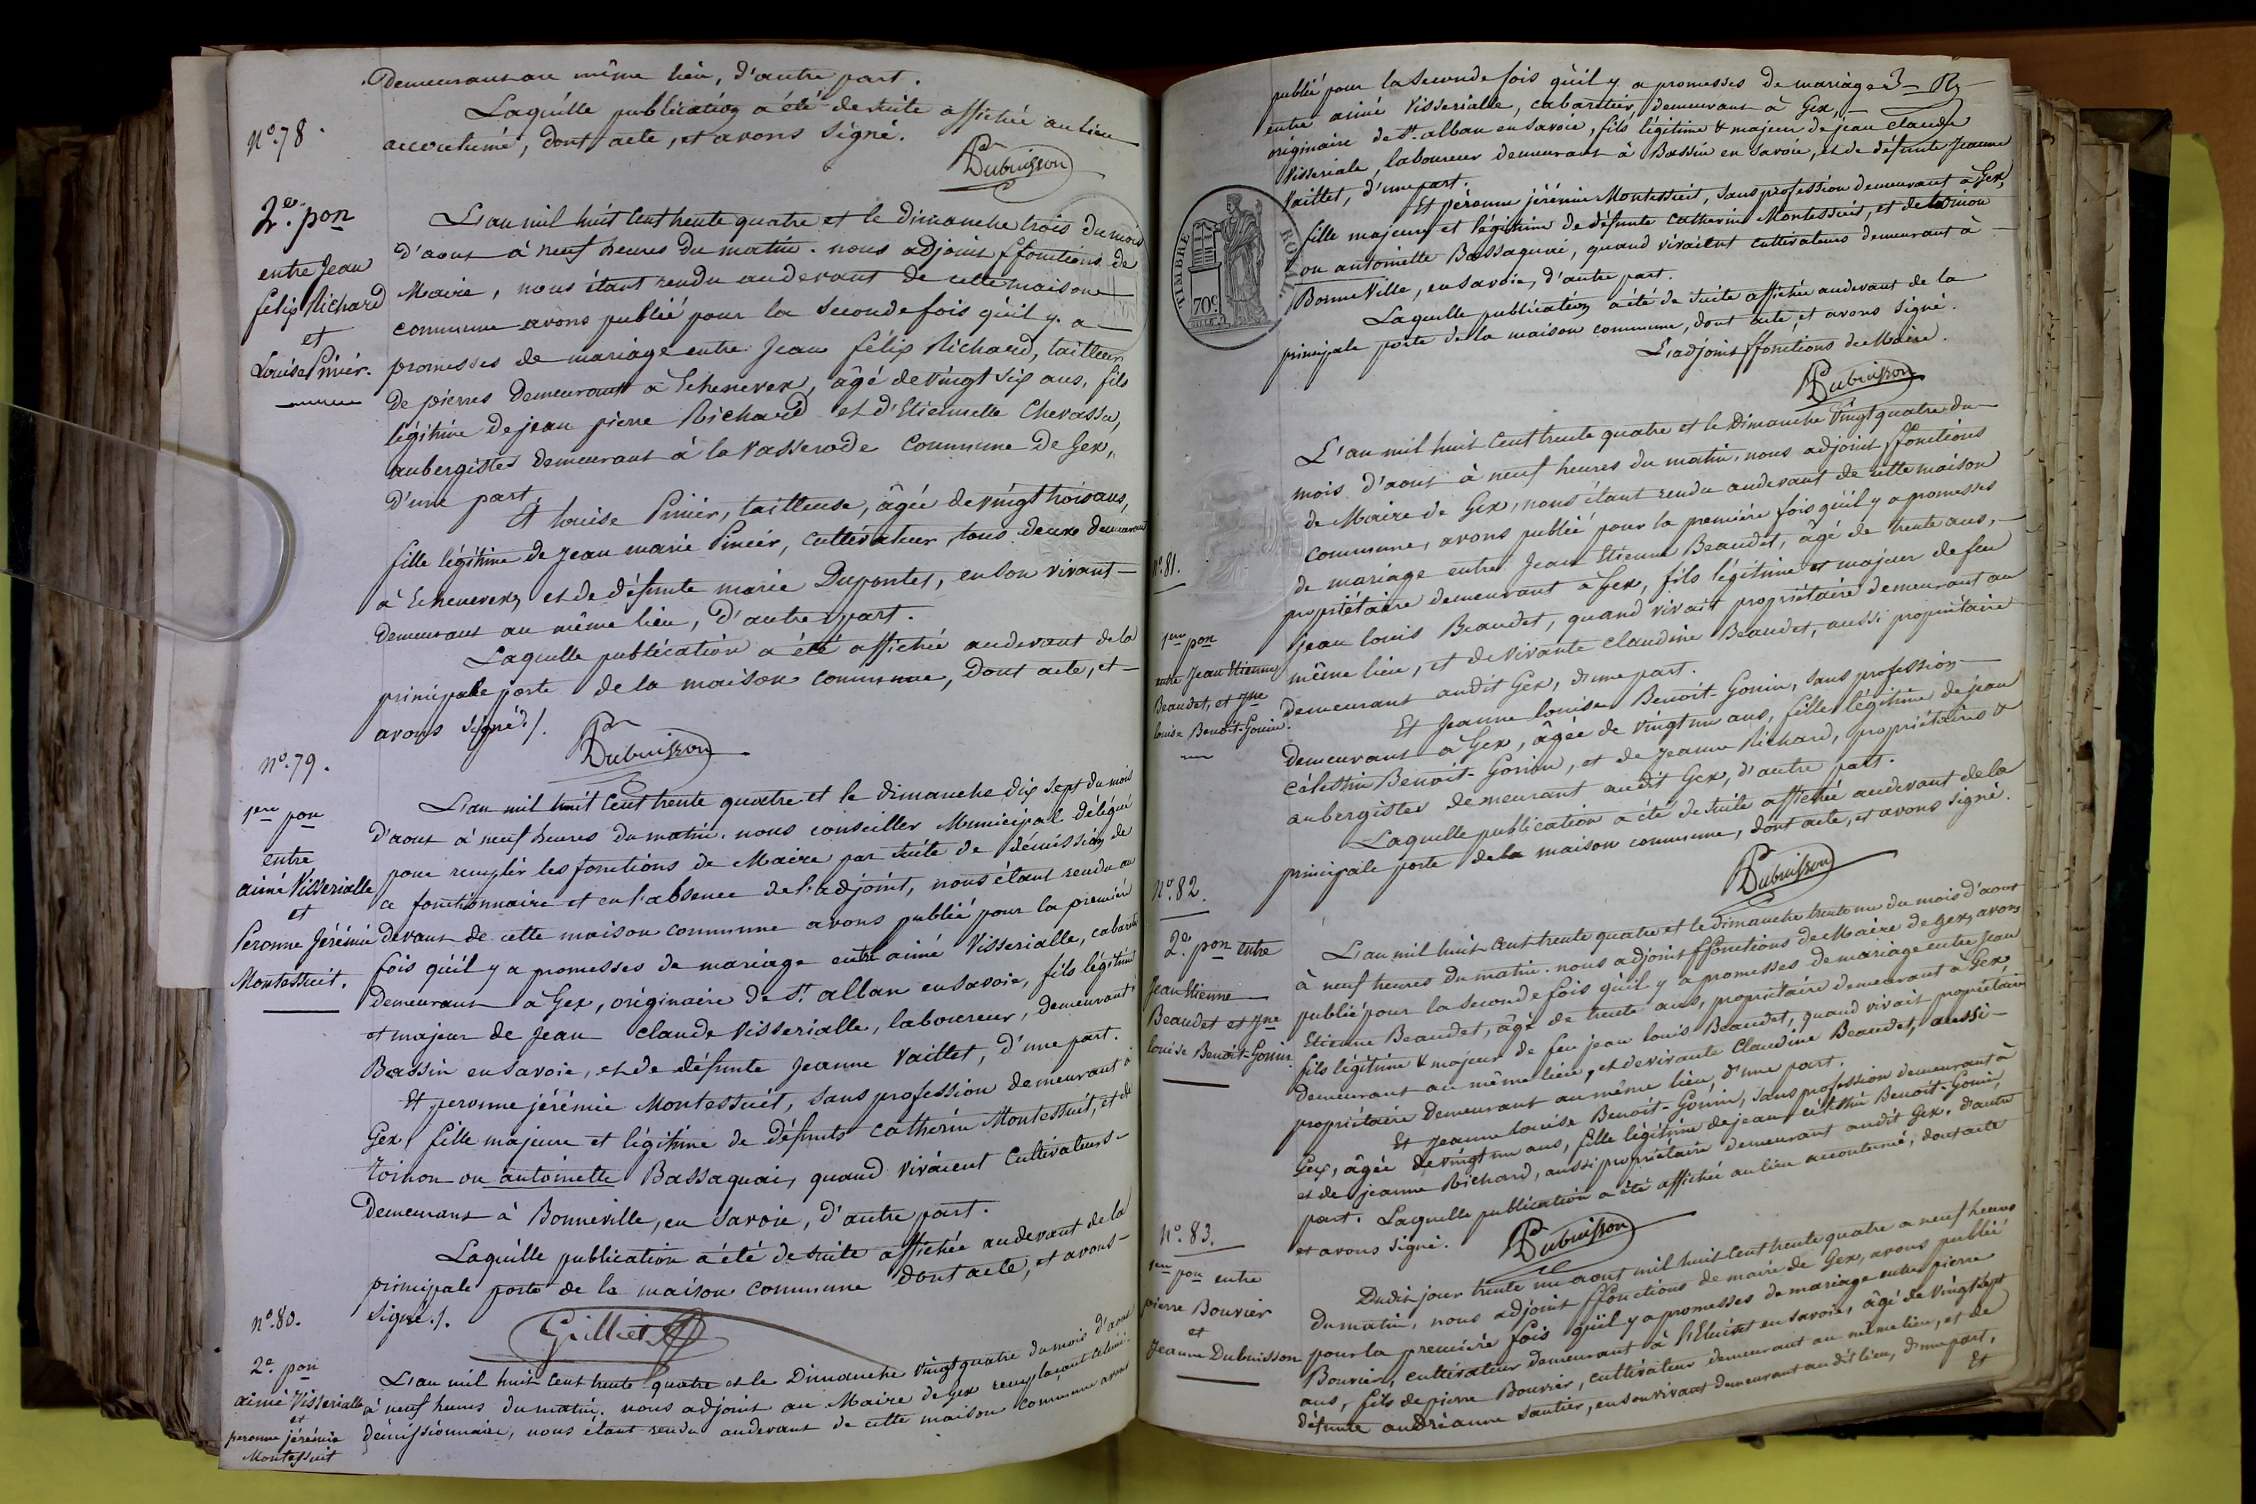 demeurant au même lieu, d'autre part.
Laquelle publication a été de suite affichée au lieu
accoutumé, dont acte, et avons signé.
Dubuisson
N°. 78.
2e. pon
entre Jean
félix Richard
et
Louise Pinier.
L'an mil huit cent trente quatre et le dimanche trois du mois
d'aout à neuf heures du matin. nous adjoint ffonctions de
Maire, nous étant rendu audevant de cette maison
commune avons publié pour la seconde fois qu'il y a
promesses de mariage entre Jean félix Richard, tailleur
de pierres demeurant à Echenevex, âgé de vingt six ans, fils
légitime de jean pierre Richard et d'Etiennette Chevassu,
aubergistes demeurant à la Vasserode Commune de Gex,
d'une part.
Et Louise Pinier, tailleuse, âgée de vingt trois ans,
fille légitime de Jean marie Pinier, cultivateur, tous deux demeurant
à Echenevex, et de défunte marie Dupontet, en son vivant
demeurant au même lieu, d'autre part.
Laquelle publication a été affichée audevant de la
principale porte de la maison commune, dont acte, et
avons signé./.
Dubuisson
N°. 79.
1ere pon
entre
aimé Visserialle
et
Peronne Jérémie
Montessuit.
L'an mil huit cent trente quatre et le dimanche dix sept du mois
d'aout à neuf heures du matin. nous conseiller Municipal délégué
pour remplir les fonctions de Maire par suite de démission de
ce fonctionnaire et en l'absence de l'adjoint, nous étant rendu au
devant de cette maison commune avons publié pour la première
fois qu'il y a promesses de mariage entre aimé Visserialle, cabaretier
demeurant à Gex, originaire de St. alban en Savoie, fils légitime
et majeur de Jean Claude Visserialle, laboureur, demeurant à
Bassin en Savoie, et de défunte Jeanne Vaillet, d'une part.
Et peronne jérémie Montessuit, sans profession demeurant à
Gex, fille majeure et légitime de défunts Catherin Montessuit, et de
Toinon ou antoinette Bassaquai, quand vivaient Cultivateurs
demeurant à Bonneville, en Savoie, d'autre part.
Laquelle publication a été de suite affichée audevant de la
principale porte de la maison commune dont acte, et avons
signé./.
Grilliet
N°. 80.
2e. pon
aimé Visserialle
et
peronne jérémie
Montessuit
L'an mil huit cent trente quatre et le Dimanche vingt quatre du mois d'aout
à neuf heures du matin. nous adjoint au Maire de Gex remplaçant celui-ci
démissionnaire, nous étant rendu audevant de cette maison commune avons
publié pour la seconde fois qu'il y a promesses de mariage
entre aimé Visserialle, cabaretier, demeurant à Gex,
originaire de St. alban en Savoie, fils légitime & majeur de jean claude
Visseriale, laboureur demeurant à Bassin en Savoie, et de défunte Jeanne
Vaillet, d'une part.
Et péronne jérémie Montessuit, sans profession demeurant à Gex,
fille majeure et légitime de défunts Catherin Montessuit, et de toinon
ou antoinette Bassaquai, quand vivaient cultivateurs demeurant à
Bonneville, en Savoie, d'autre part.
Laquelle publication a été de suite affichée audevant de la
principale porte de la maison commune, dont acte, et avons signé.
L'adjoint ffonctions de Maire.
Dubuisson
TIMBRE ROYAL
70c.
N°. 81.
1ere pon
entre Jean Etienne
Beaudet, et Jne
louise Benoit-Gonin.
L'an mil huit cent trente quatre et le Dimanche vingt quatre du
mois d'aout à neuf heures du matin. nous adjoint ffonctions
de Maire de Gex, nous étant rendu audevant de cette maison
commune, avons publié pour la première fois qu'il y a promesses
de mariage entre Jean Etienne Beaudet, âgé de trente ans,
propriétaire demeurant à Gex, fils légitime et majeur de feu
jean louis Beaudet, quand vivait propriétaire demeurant au
même lieu, et de vivante claudine Beaudet, aussi propriétaire
demeurant audit Gex, d'une part.
Et Jeanne louise Benoit-Gonin, sans profession
demeurant à Gex, âgée de vingt un ans, fille légitime de jean
célestin Benoit-Gonin, et de Jeanne Richard, propriétaires &
aubergistes demeurant audit Gex, d'autre part.
Laquelle publication a été de suite affichée audevant de la
principale porte de la maison commune, dont acte, et avons signé.
Dubuisson
N°. 82.
2e. pon entre
Jean Etienne
Beaudet et Jne
Louise Benoit-Gonin.
L'an mil huit cent trente quatre et le dimanche trente un du mois d'aout
à neuf heures du matin. nous adjoint ffonctions de Maire de Gex, avons
publié pour la seconde fois qu'il y a promesses de mariage entre Jean
Etienne Beaudet, âgé de trente ans, propriétaire demeurant à Gex,
fils légitime & majeur de feu jean louis Beaudet, quand vivait propriétaire
demeurant au même lieu, et de vivante Claudine Beaudet, aussi
propriétaire demeurant au même lieu, d'une part.
Et Jeanne louise Benoit-Gonin, sans profession demeurant à
Gex, âgée de vingt un ans, fille légitime de jean célestin Benoit-Gonin,
et de jeanne Richard, aussi propriétaire demeurant audit Gex, d'autre
part. Laquelle publication a été affichée au lieu accoutumé, dont acte
et avons signé.
Dubuisson
N°. 83.
1ere pon entre
pierre Bouvier
et
Jeanne Dubuisson
Dudit jour trente un aout mil huit cent trente quatre à neuf heures
du matin, nous adjoint ffonctions de maire de Gex, avons publié
pour la première fois qu'il y a promesses de mariage entre pierre
Bouvier, cultivateur demeurant à l'Eluiset en Savoie, âgé de vingt sept
ans, fils de pierre Bouvier, cultivateur demeurant au même lieu, et de
défunte andréanne Sautier, en son vivant demeurant audit lieu, d'une part,
Et